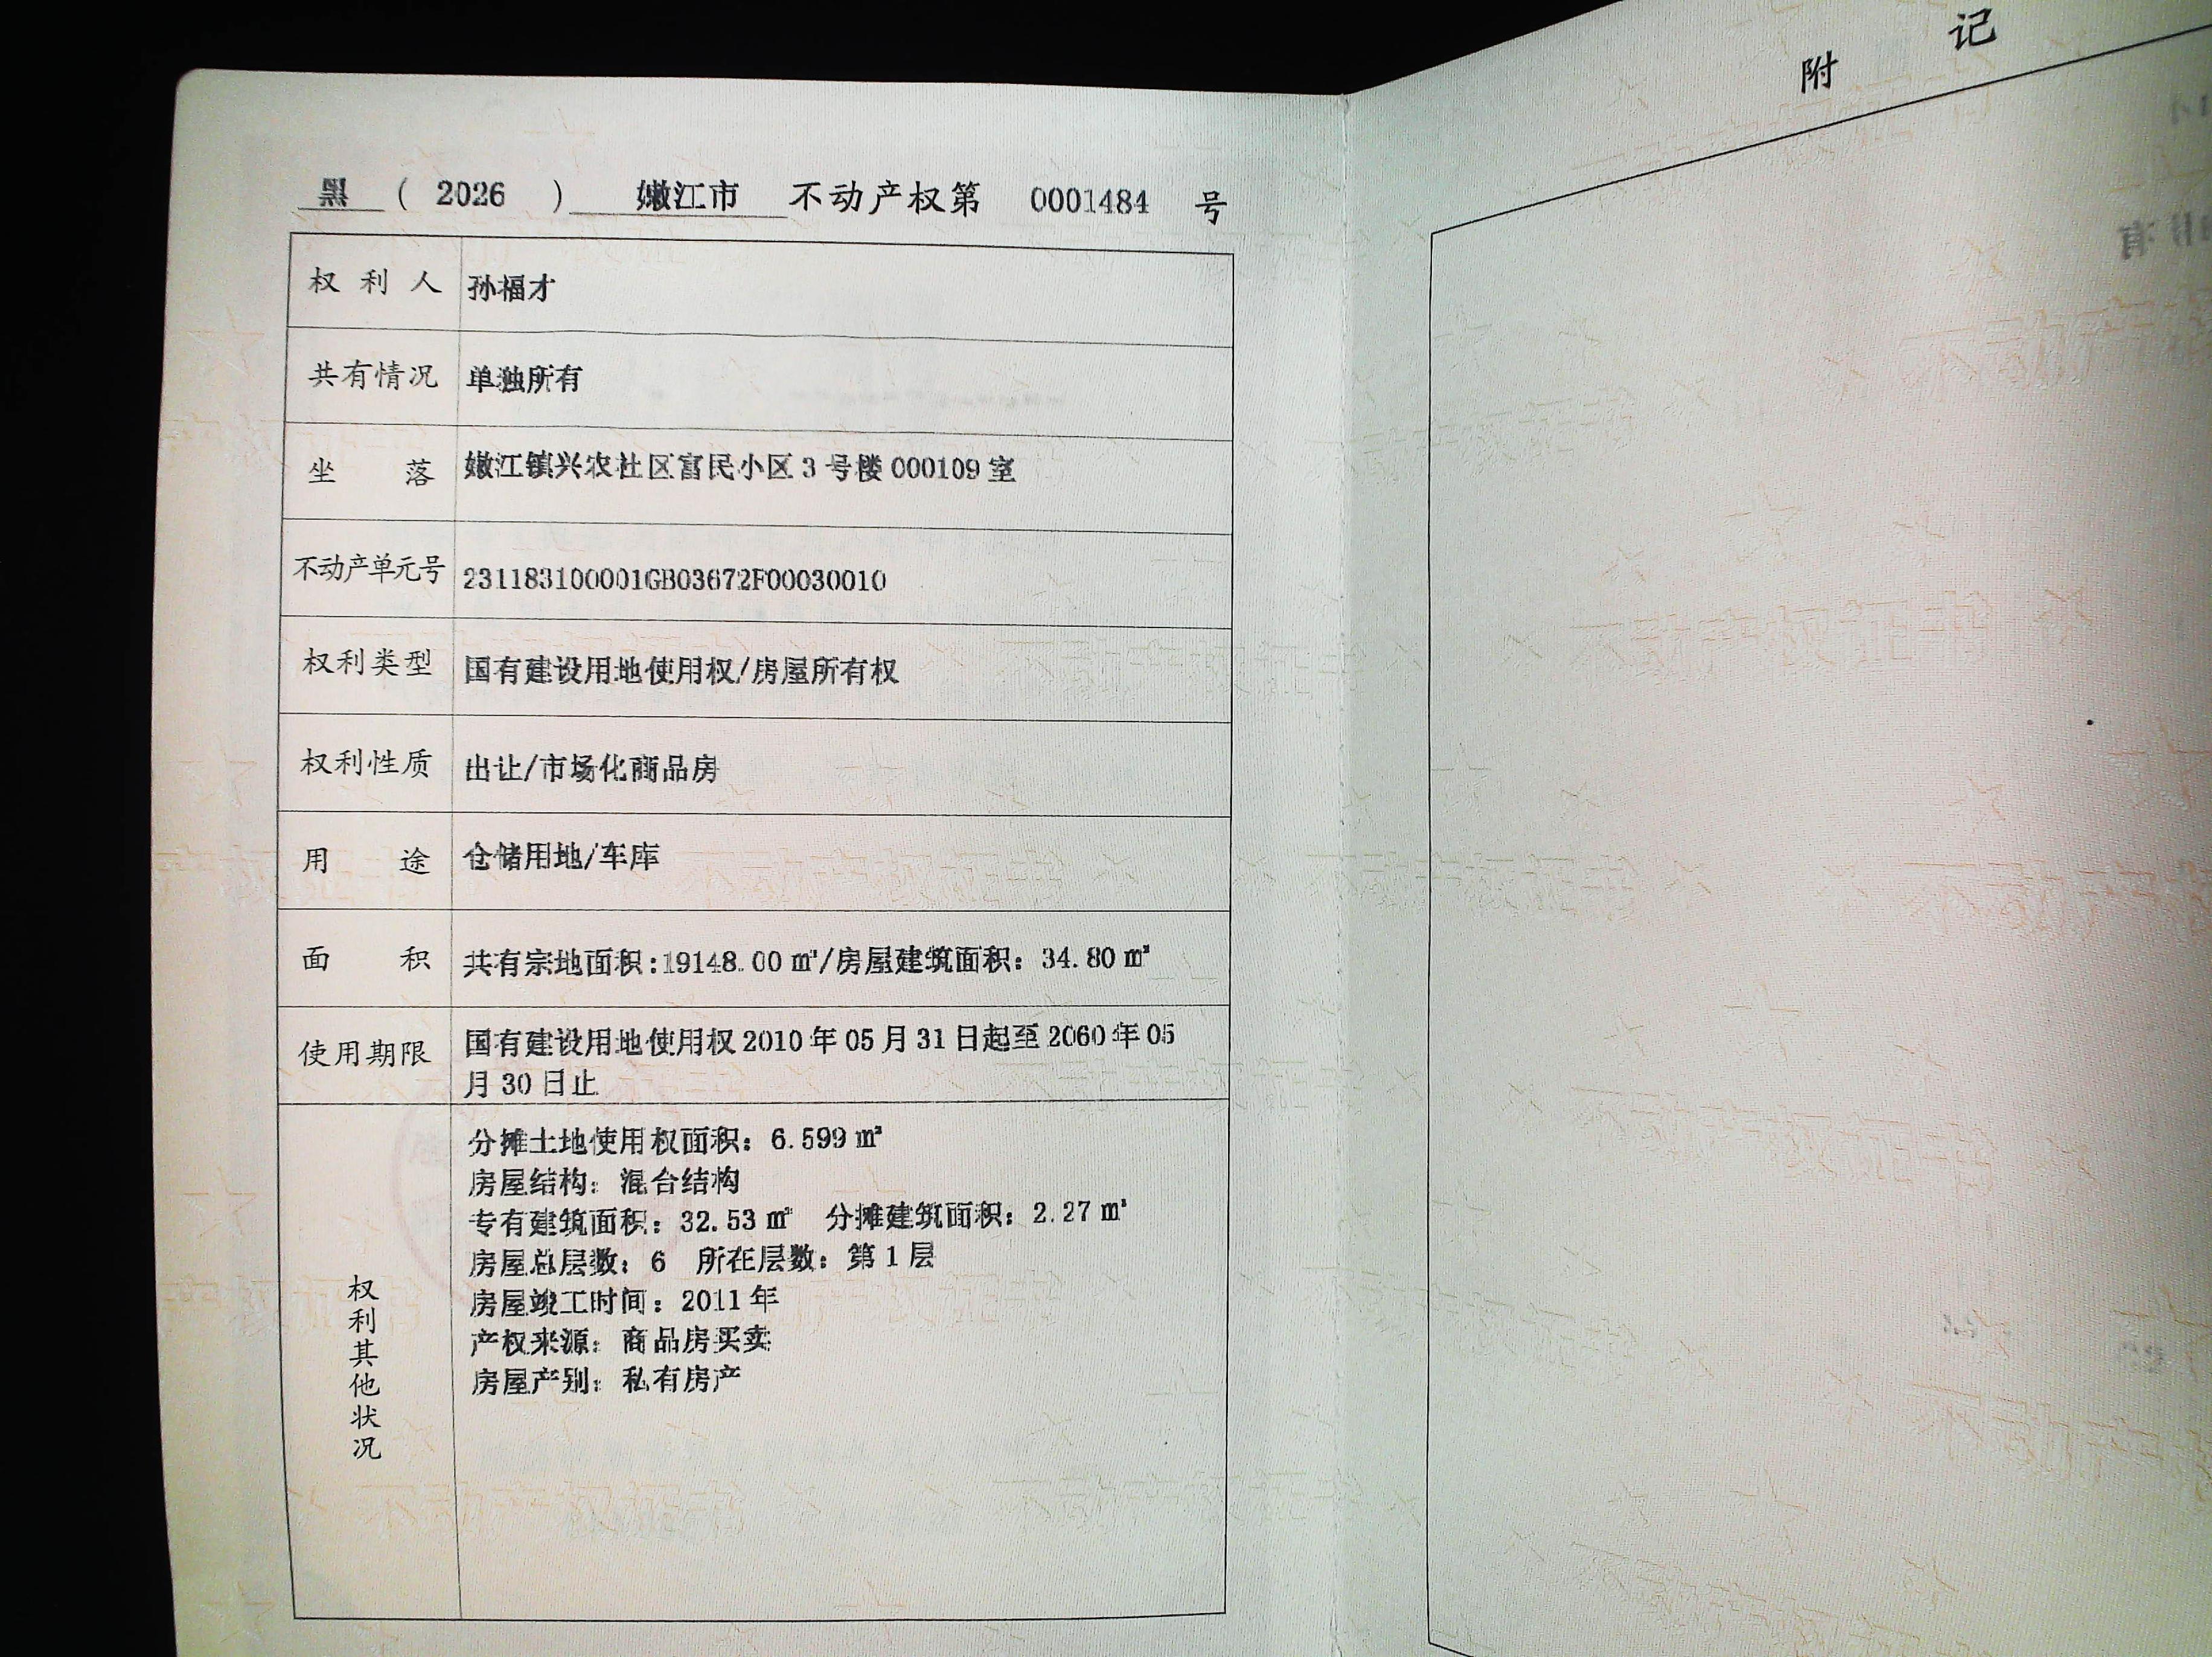 黑 ( 2026 ) 嫩江市 不动产权第 0001484 号
权利人 孙福才
共有情况 单独所有
坐落 嫩江镇兴农社区富民小区3号楼000109室
不动产单元号 231183100001GB03672F00030010
权利类型 国有建设用地使用权/房屋所有权
权利性质 出让/市场化商品房
用途 仓储用地/车库
面积 共有宗地面积:19148.00㎡/房屋建筑面积：34.80㎡
使用期限 国有建设用地使用权2010年05月31日起至2060年05
月30日止
权利其他状况
分摊土地使用权面积：6.599㎡
房屋结构：混合结构
专有建筑面积：32.53㎡ 分摊建筑面积：2.27㎡
房屋总层数：6 所在层数：第1层
房屋竣工时间：2011年
产权来源：商品房买卖
房屋产别：私有房产
附记